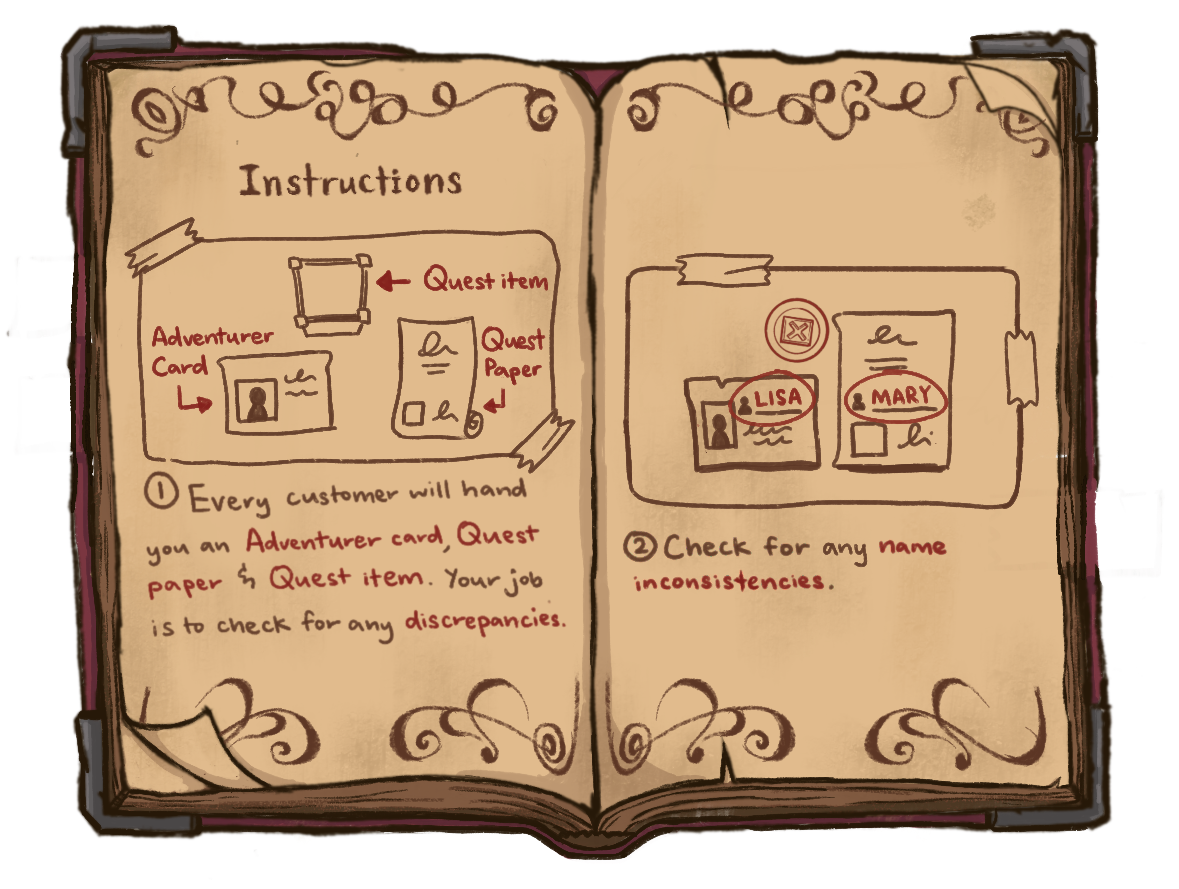 Instructions
Quest item
Adventurer
Card
Quest
Paper
① Every customer will hand
you an Adventurer card, Quest
paper & Quest item. Your job
is to check for any discrepancies.
LISA
MARY
② Check for any name
inconsistencies.